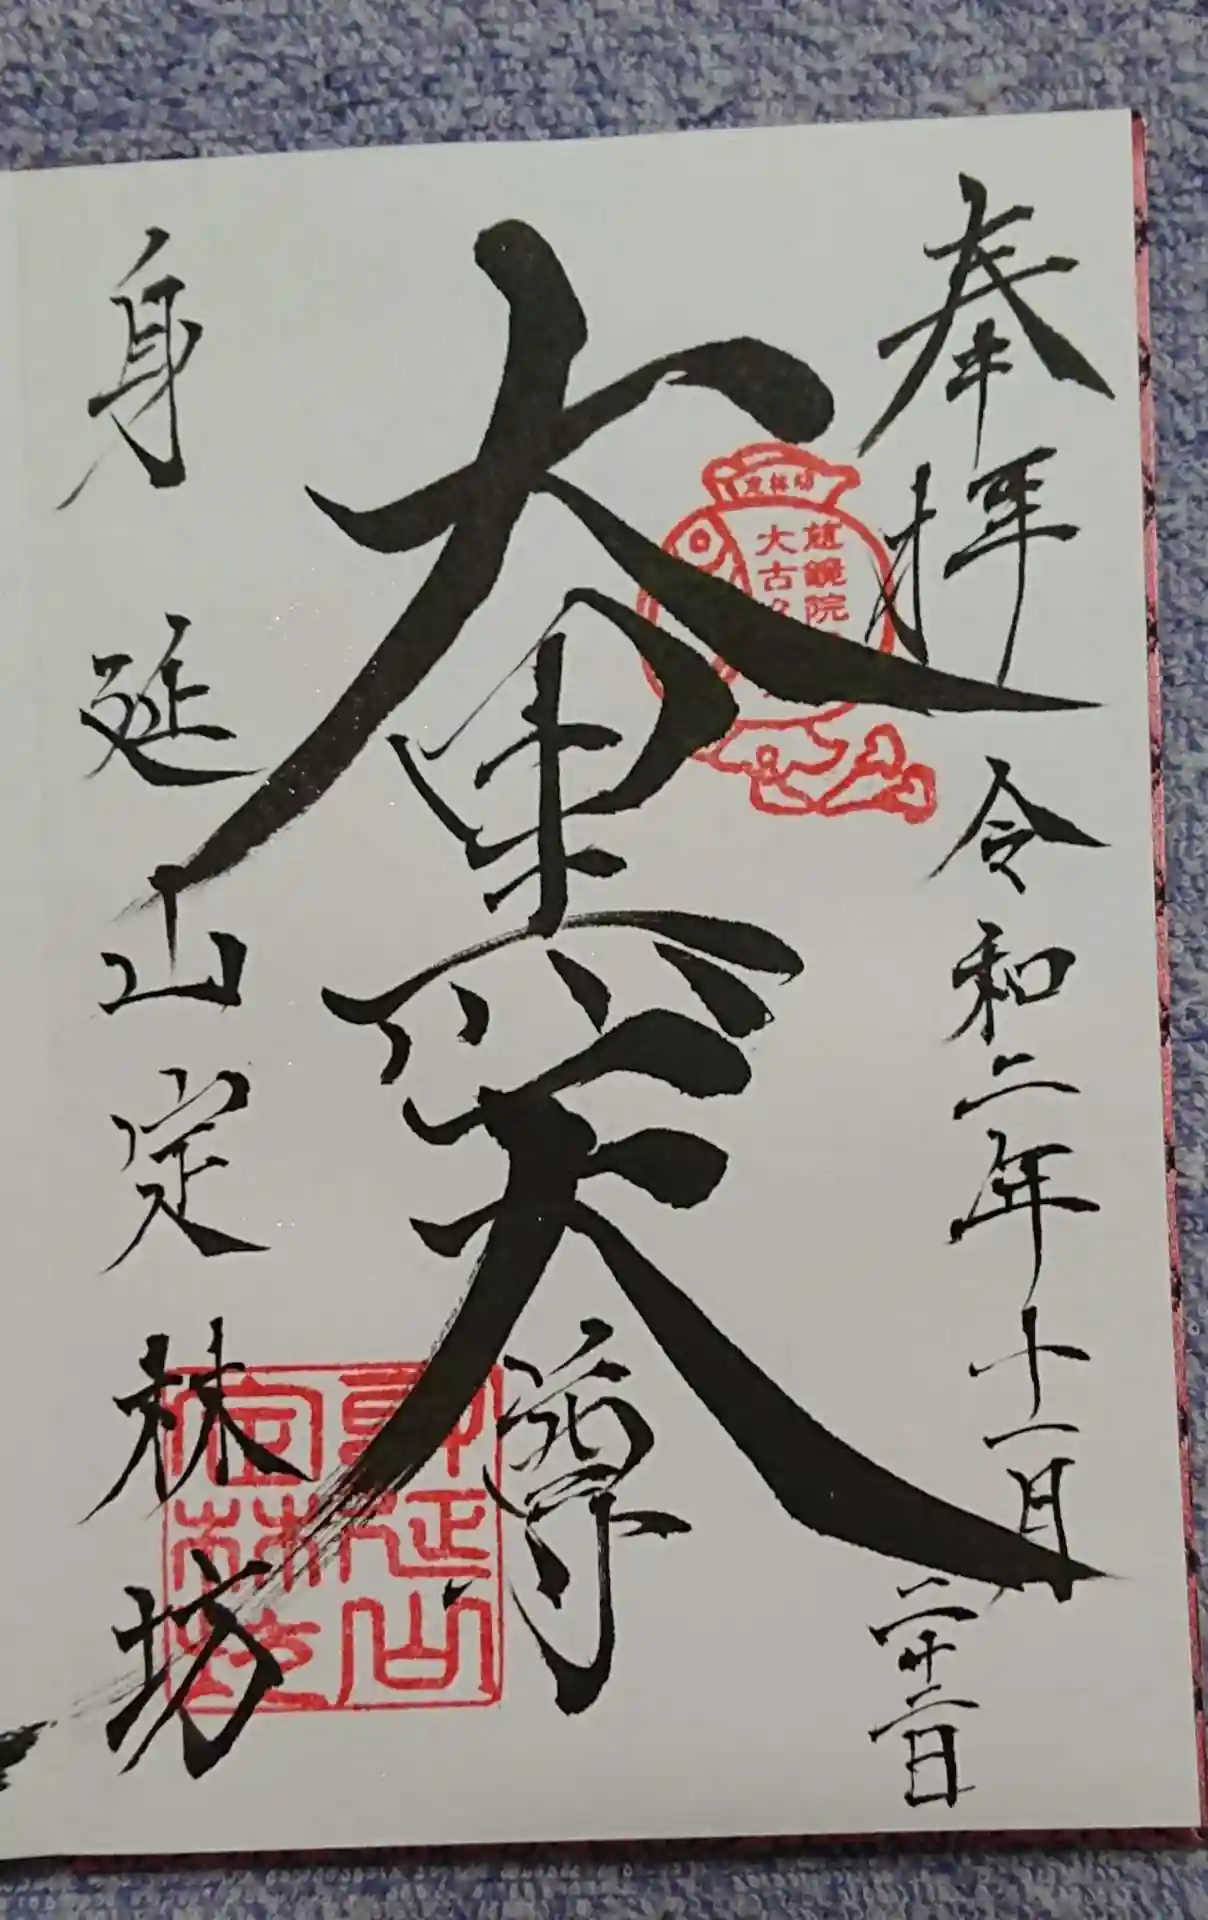 奉拝
令和二年十一月
二十二日
大黒天
尊
身延山定林坊
定林坊
慈鏡院
大古久
身延山
定林坊